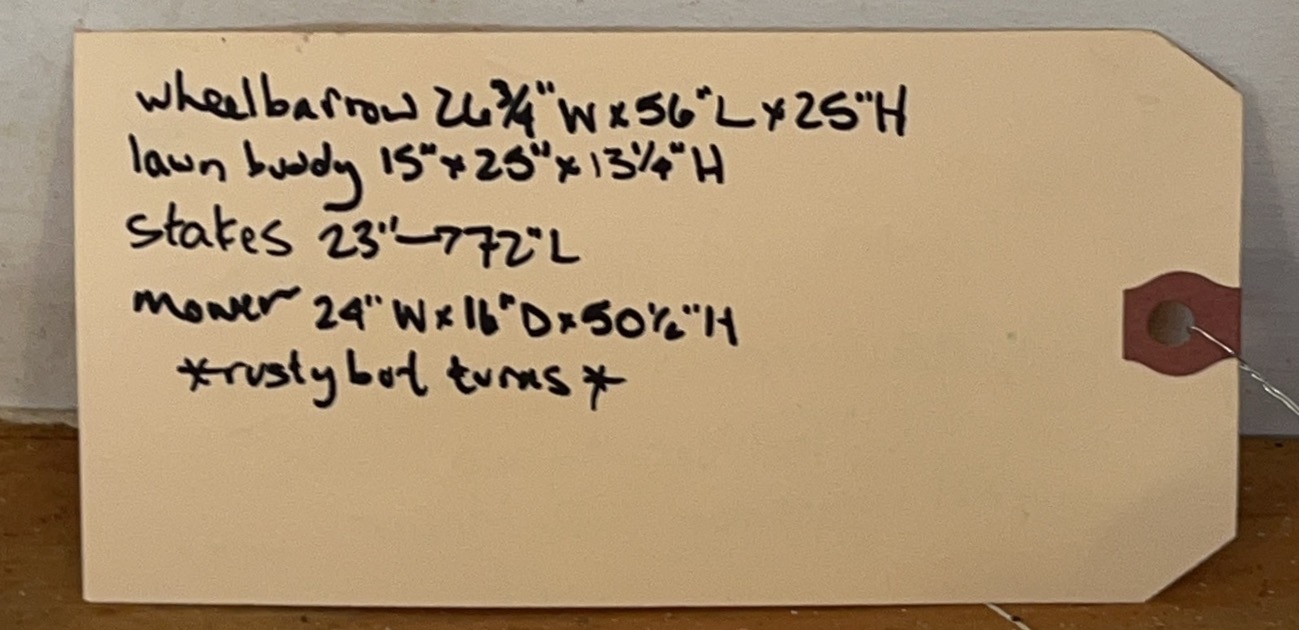 wheelbarrow 26 3/4" W x 56" L x 25" H
lawn buddy 15" x 25" x 13 1/4" H
stakes 23" → 72" L
mower 24" W x 16" D x 50 1/2" H
*rusty but turns*